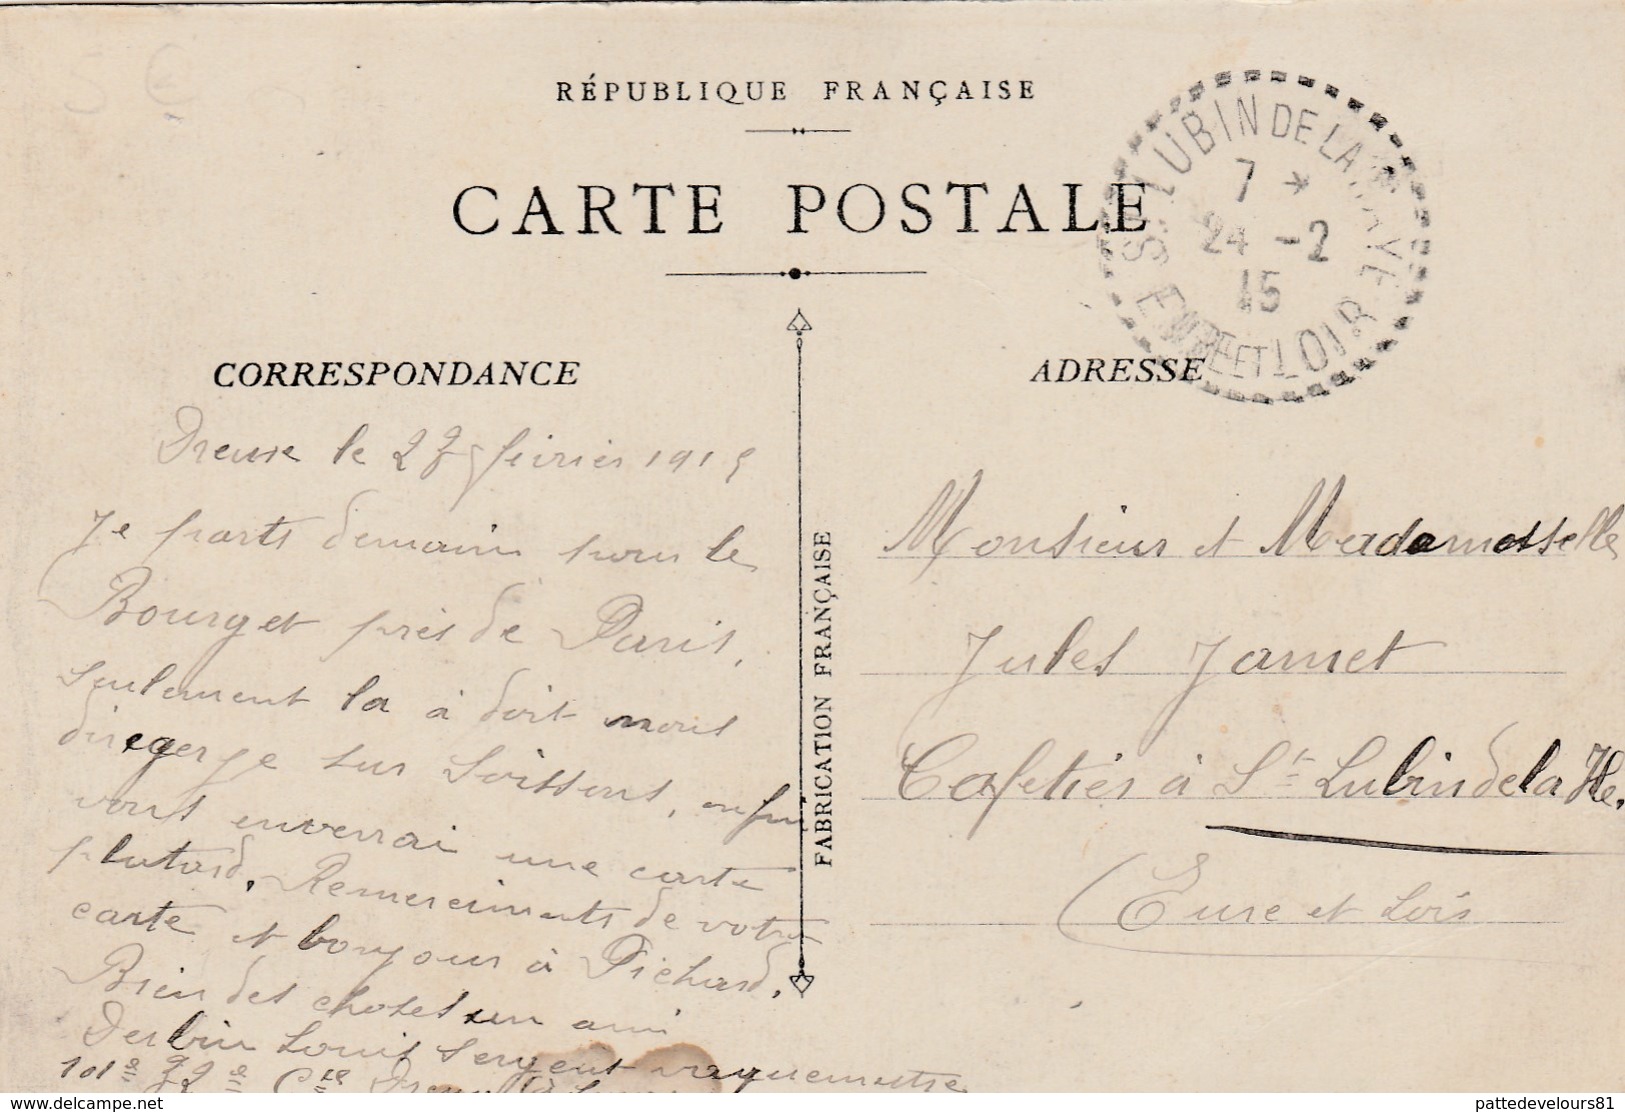 RÉPUBLIQUE FRANÇAISE
CARTE POSTALE
ST LUBIN DE LA HAYE
7 *
24 - 2
15
EURE ET LOIR
CORRESPONDANCE
ADRESSE
FABRICATION FRANÇAISE
Dreux le février 1915
Je parts demain pour le
Bourget près de Paris,
seulement la à doit nous
sur Soissons, enfin
vous enverrai une carte
plutard. Remerciments de votre
carte et bonjour à Pichard.
Bien des choses un ami
Louis Sergent vaguemestre
101e
Monsieur et Mademoiselle
Jules Jamet
Cafetier à St Lubin de la He.
(Eure et Loir
delcampe.net
pattedevelours81